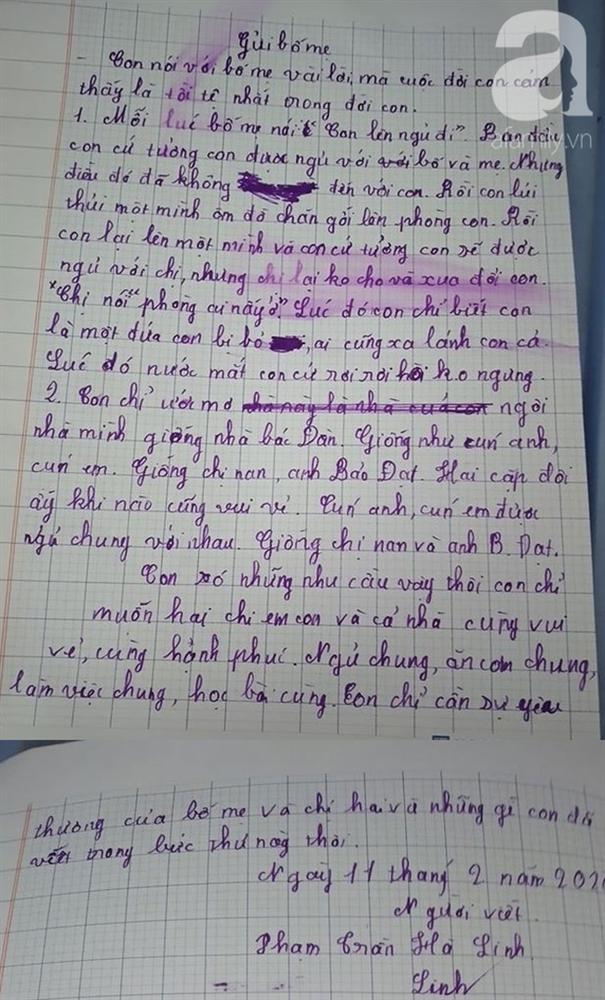 Gửi bố mẹ
- Con nói với bố mẹ vài lời, mà cuộc đời con cảm
thấy là tồi tệ nhất trong đời con.
1. Mỗi lúc bố mẹ nói "Con lên ngủ đi". Ban đầu
con cứ tưởng con được ngủ với với bố và mẹ. Nhưng
điều đó đã không đến với con. Rồi con lủi
thủi một mình ôm đồ chăn gối lên phòng con. Rồi
con lại lên một mình và con cứ tưởng con sẽ được
ngủ với chị, nhưng chị lại ko cho và xua đổi con.
"Chị nói" phòng cj này ở." Lúc đó con chỉ biết con
là một đứa con bị bỏ , ai cũng xa lánh con cả.
Lúc đó nước mắt con cứ rơi rơi hồi ko ngưng.
2. Con chỉ ước mơ nhà này là nhà của con ngôi
nhà mình giống nhà bác Đàn. Giống như cún anh,
cún em. Giống chị nan, anh Bảo Đạt. Hai cặp đôi
ấy khi nào cũng vui vẻ. Cún anh, cún em được
ngủ chung với nhau. Giống chị nan và anh B. Đạt.
Con có những nhu cầu vậy thôi con chỉ
muốn hai chị em con và cả nhà cùng vui
vẻ, cùng hạnh phúc. Ngủ chung, ăn cơm chung,
làm việc chung, học bài cùng. Con chỉ cần sự yêu
thương của bố mẹ và chị hai và những gì con đã
viết trong bức thư này thôi.
Ngày 11 tháng 2 năm 202
Người viết
Phạm Trần Hà Linh
Linh
afamily.vn